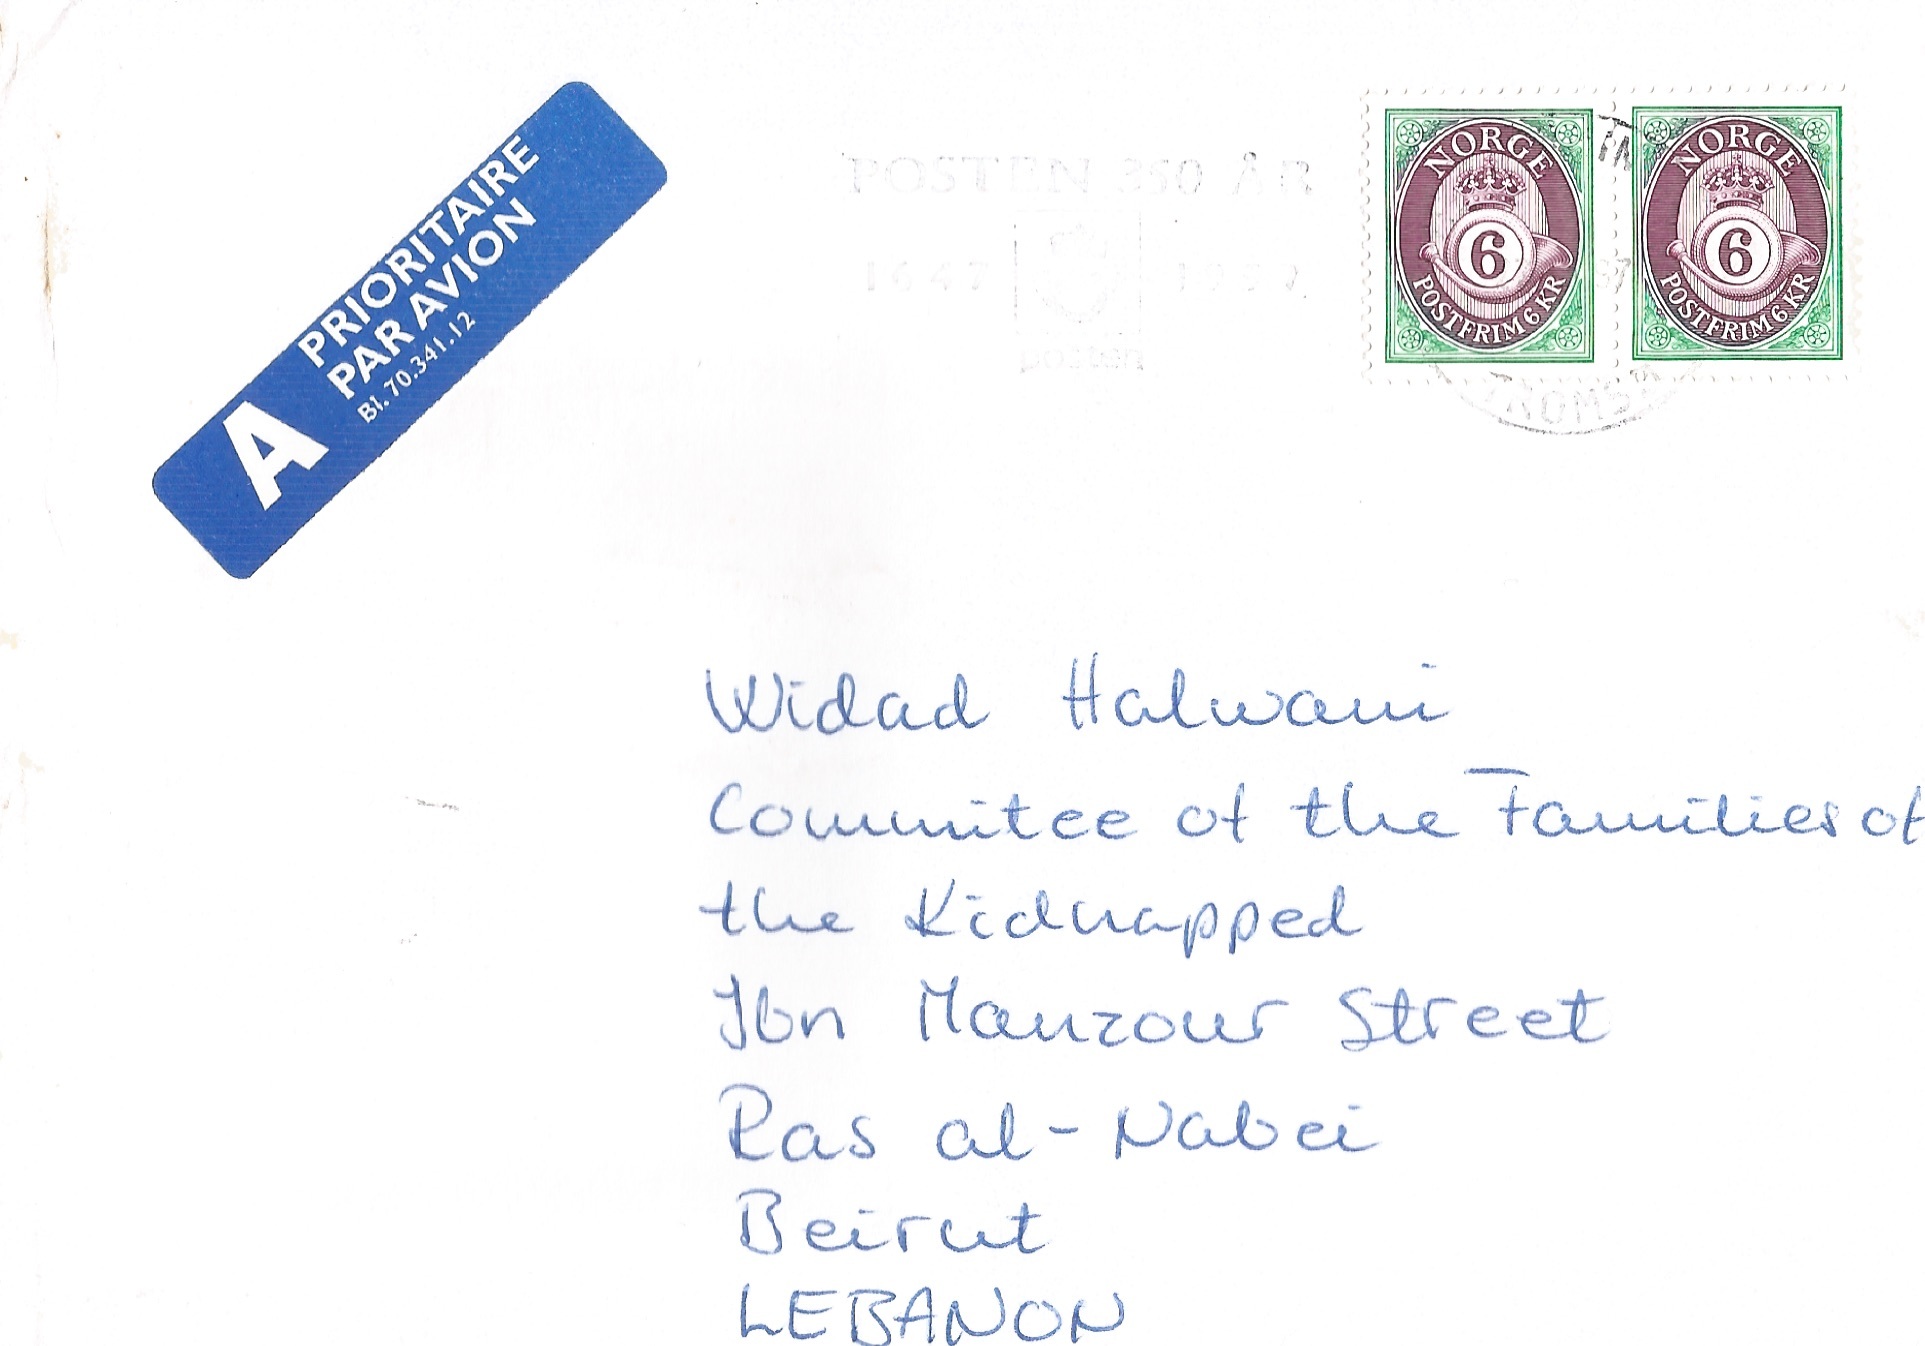 A PRIORITAIRE
PAR AVION
Bl. 70.341.12
POSTEN 350 ÅR
1647 1997
posten
NORGE
6
POSTFRIM 6 KR
NORGE
6
POSTFRIM 6 KR
97
TROMSØ
Widad Halwani
Commitee of the Families of
the Kidnapped
Ibn Manzour Street
Ras al-Nabei
Beirut
LEBANON